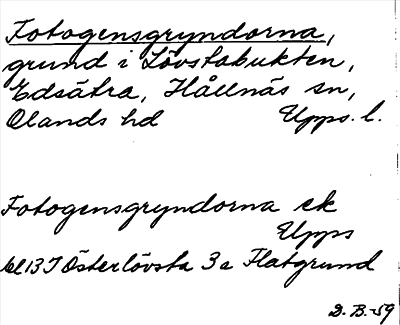 Fotogensgryndorna,
grund i Lövstabukten,
Edsätra, Hållnäs sn,
Olands hd Upps. l.
Fotogensgryndorna ek
Upps
bl 13 I Österlövsta 3 c Flatgrund
D.B.-59